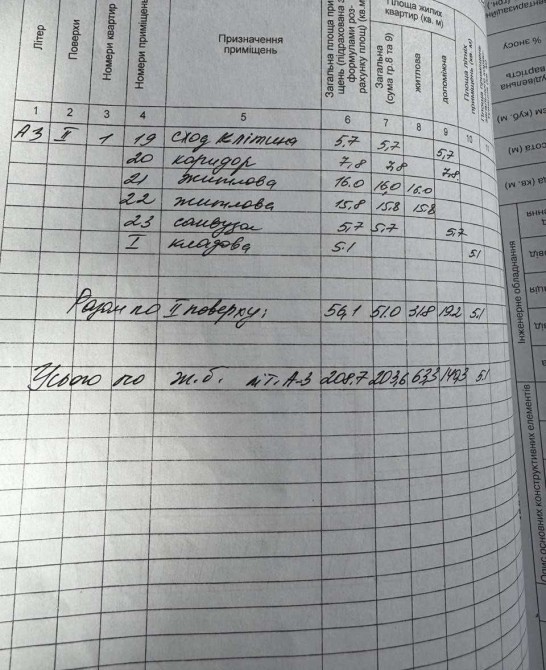 Літер
Поверхи
Номери квартир
Номери приміщень
Призначення
приміщень
Загальна площа примі-
щень (підрахована за
формулами роз-
рахунку площ) (кв.м)
Площа жилих
квартир (кв. м)
Загальна
(сума гр.8 та 9)
житлова
допоміжна
1 2 3 4 5 6 7 8 9 10
А3 II 1 19 сход клітина 5,7 5,7 5,7
20 коридор 7,8 7,8 7,8
21 житлова 16.0 16,0 16.0
22 житлова 15,8 15,8 15,8
23 санвузол 5,7 5,7 5,7
I кладова 5.1 5.1
Разом по II поверху: 56,1 51.0 31.8 19.2 5.1
Усього по ж.б. літ. А-3 208,7 203,6 5.1
Інженерне обладнання
Опис основних конструктивних елементів
% зносу